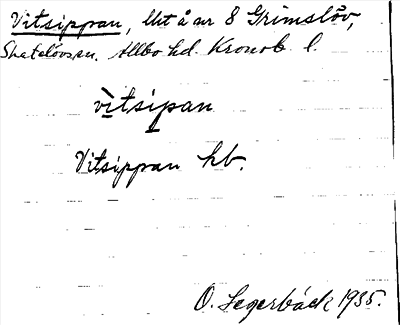 Vitsippan, lht å av 8 Grimslöv,
Skatelövs sn. Allbo hd. Kronob l.
vìtsipan
Vitsippan hb.
O. Segerbäck 1935.